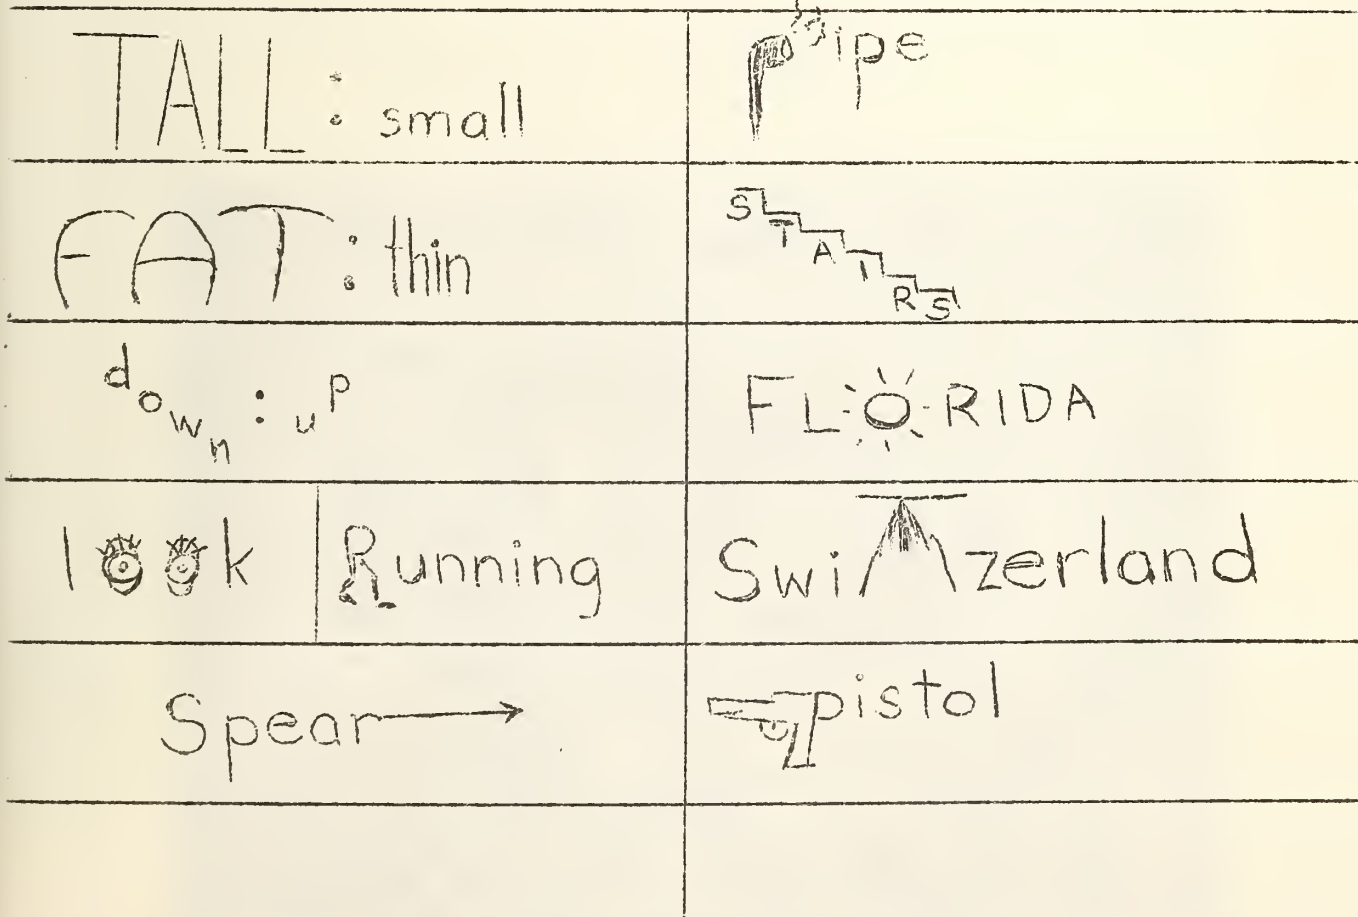 TALL : small
pipe
FAT : thin
STAIRS
down : up
FLORIDA
look
Running
Switzerland
Spear
pistol